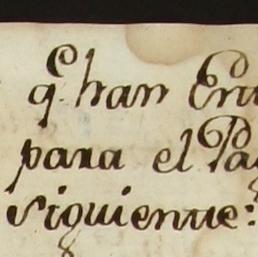 q.^e han Ent
para el Pag
siguiente: